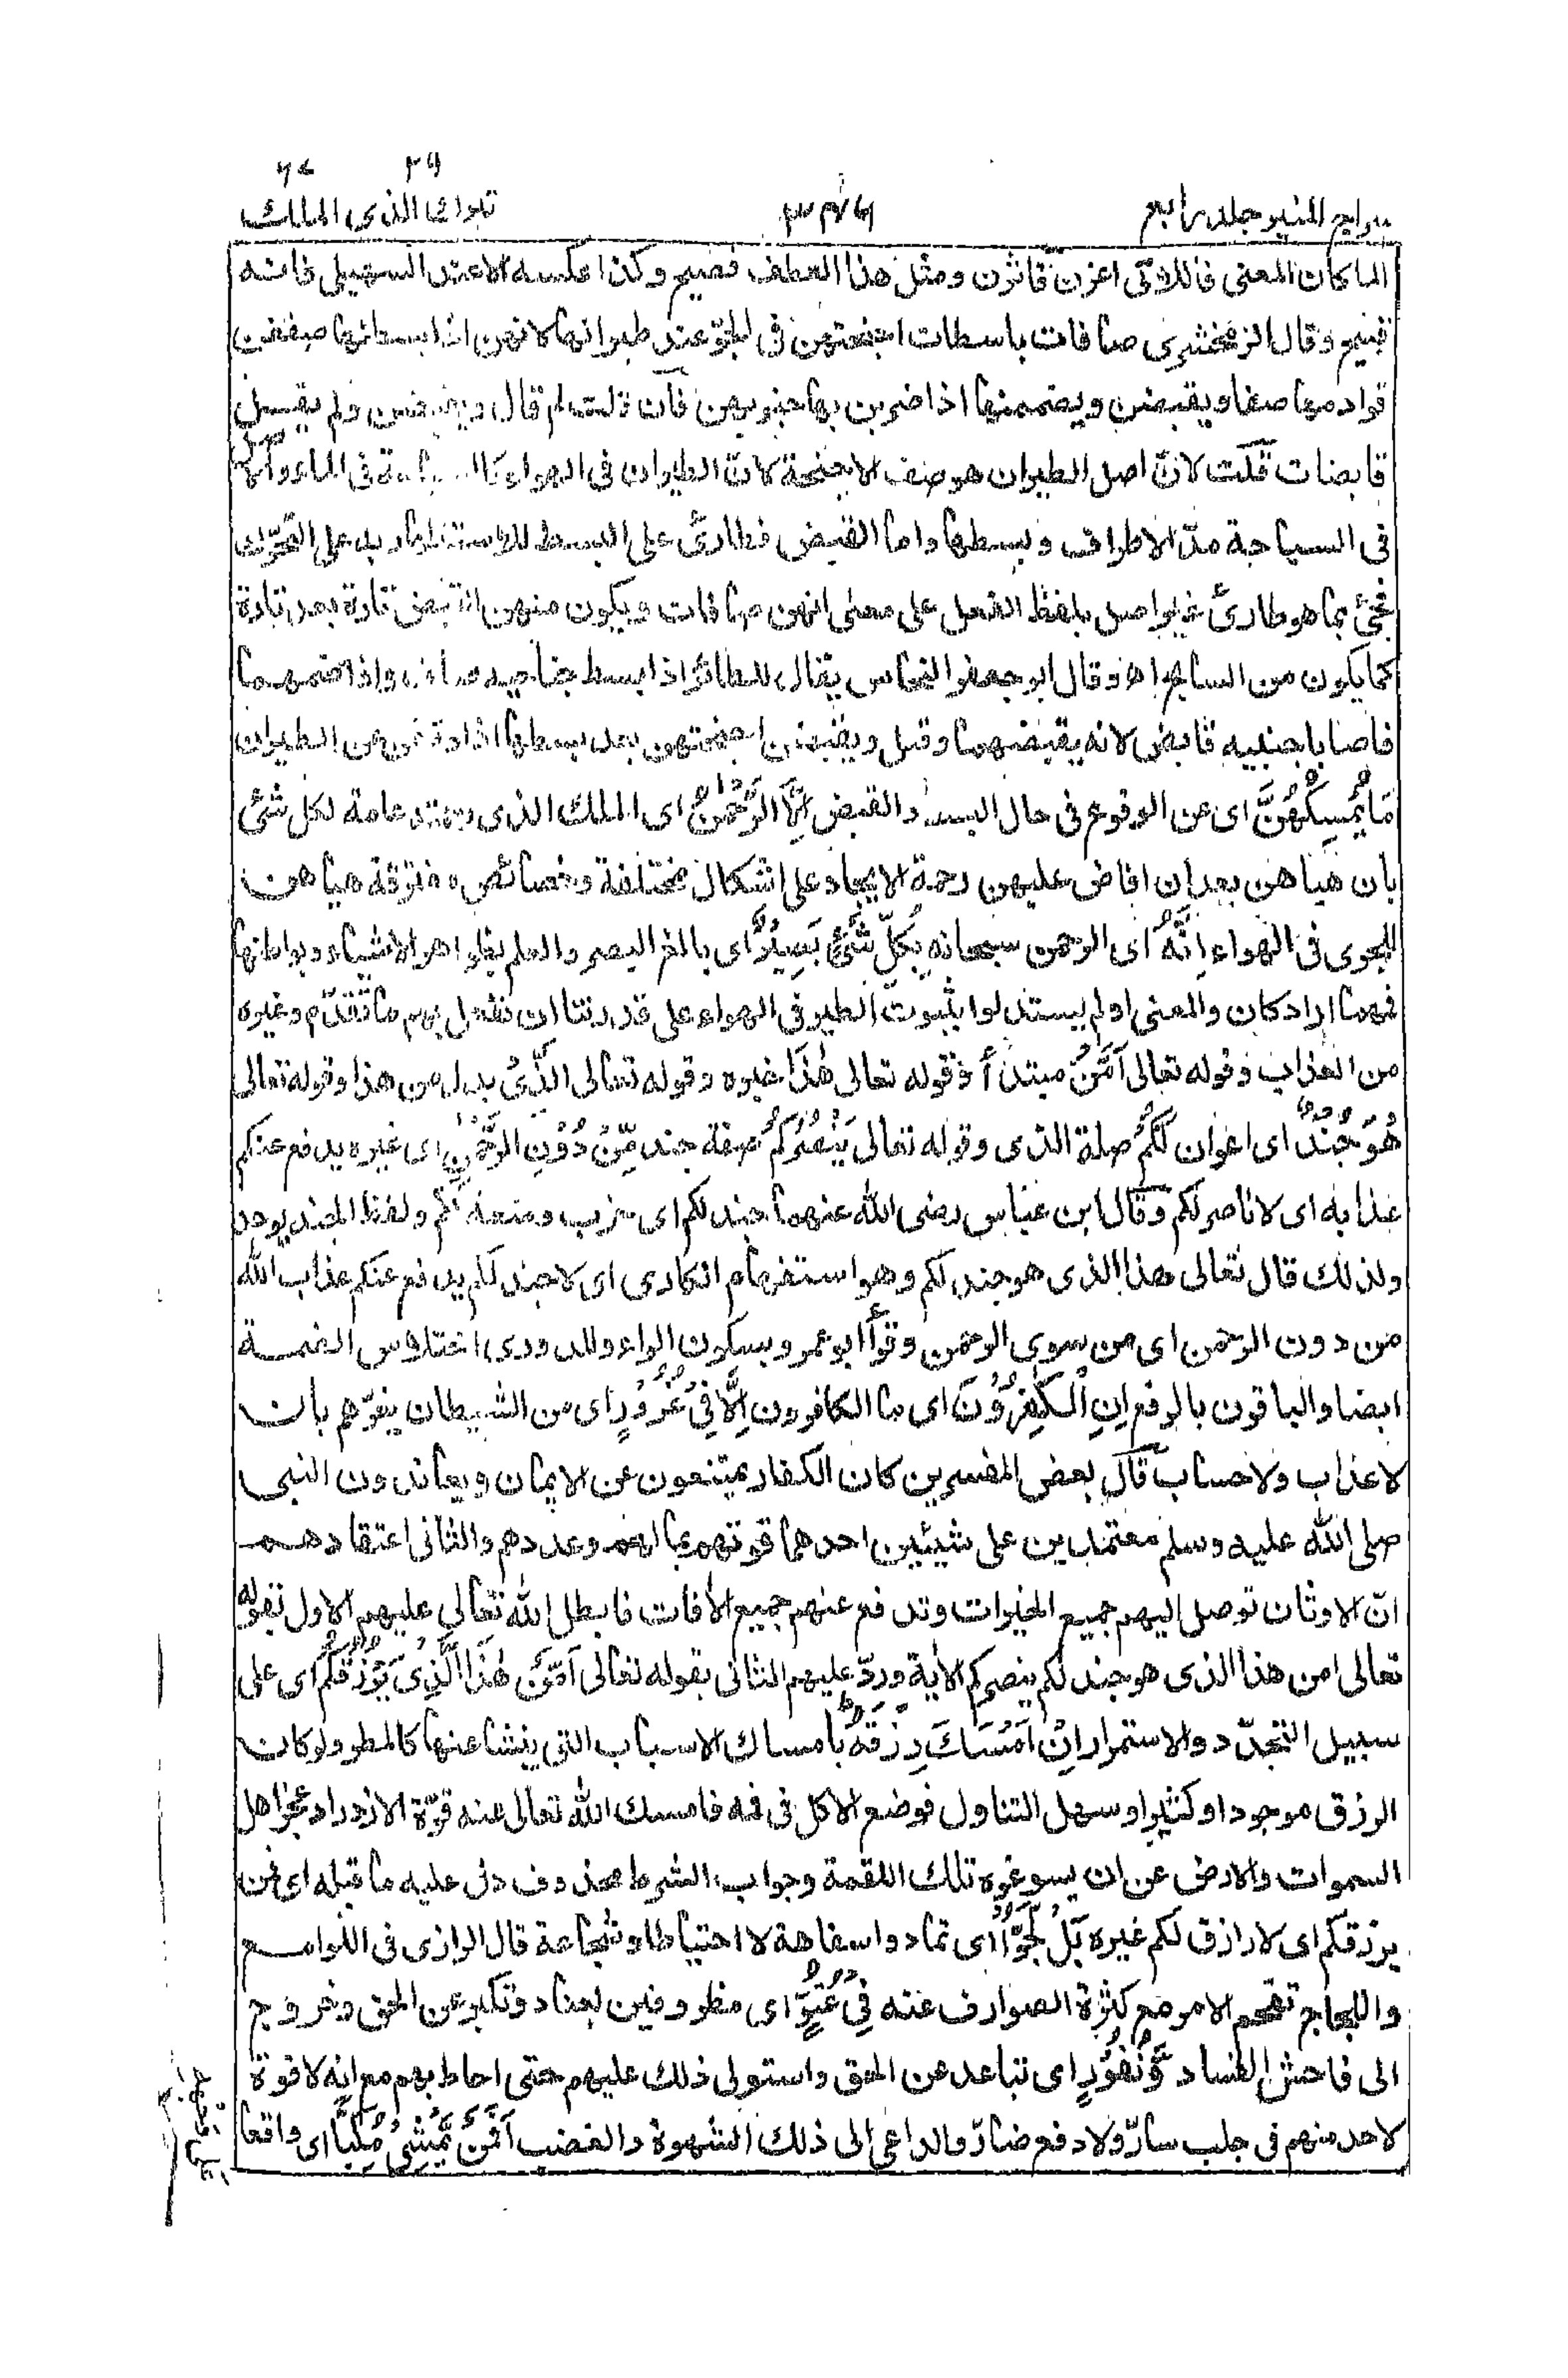 ۲۹ ۶۷
سراج المنير جلد رابع ۳۴۶ تبارك الذى الملك
لما كان المعنى فاللاتى اغرن فاثرن ومثل هذا العطف فصيح وكذا عكسه الا عند السهيلى فانه
قبيح وقال الزمخشرى صافات باسطات اجنحتهن فى الجوّ عند طيرانها لانهن اذا بسطنها صففن
قوادمها صفا ويقبضن ويضممنها اذا ضربن بها جنوبهن فان قلت لم قال ويقبضن ولم يقل
قابضات قلت لانّ اصل الطيران هو صف الاجنحة لانّ الطيران فى الهواء كالسباحة فى الماء والاصل
فى السباحة مدّ الاطراف وبسطها واما القبض فطارئ على البسط للاستظهار به على التحرّك
فجئ بما هو طارئ غير اصل بلفظ الفعل على معنى انهن صافات ويكون منهن القبض تارة بعد تارة
كما يكون من السابح اه وقال ابو جعفر النحاس يقال للطائر اذا بسط جناحيه صاف واذا ضمهما
فاصابا جنبيه قابض لانه يقبضهما وقيل ويقبضن اجنحتهن بعد بسطها اذا وقفن من الطيران
مَا يُمْسِكُهُنَّ اى عن الوقوع فى حال البسط والقبض اِلَّا الرَّحْمٰنُ اى الملك الذى رحمته عامة لكل شئ
بان هياهن بعد ان افاض عليهن رحمة الايجاد على اشكال مختلفة وخصائص مفترقة هياهن
للجرى فى الهواء اِنَّهٗ اى الرحمن سبحانه بِكُلِّ شَيْءٍ بَصِيْرٌ اى بالغ البصر والعلم بظواهر الاشياء وبواطنها
فمهما اراد كان والمعنى اولم يستدلوا بثبوت الطير فى الهواء على قدرتنا ان نفعل بهم ما تقدّم وغيره
من العذاب وقوله تعالى اَمَّنْ مبتدأ وقوله تعالى هٰذَا خبره وقوله تعالى الَّذِىْ بدل من هذا وقوله تعالى
هُوَ جُنْدٌ اى اعوان لَّكُمْ صلة الذى وقوله تعالى يَنْصُرُكُمْ صفة جند مِّنْ دُوْنِ الرَّحْمٰنِ اى غيره يدفع عنكم
عذابه اى لا ناصر لكم وقال ابن عباس رضى الله عنهما جند لكم اى حزب ومنعة لكم ولفظ الجند يوحد
ولذلك قال تعالى هذا الذى هو جند لكم وهو استفهام انكارى اى لا جند لكم يدفع عنكم عذاب الله
من دون الرحمن اى من سوى الرحمن وقرأ ابو عمرو بسكون الراء وللدورى اختلاس الضمة
ايضا والباقون بالرفع اِنِ الْكٰفِرُوْنَ اى ما الكافرون اِلَّا فِىْ غُرُوْرٍ اى من الشيطان يغرّهم بان
لا عذاب ولا حساب قال بعض المفسرين كان الكفار يمتنعون عن الايمان ويعاندون النبى
صلى الله عليه وسلم معتمدين على شيئين احدهما قوتهم بمالهم وعددهم والثانى اعتقادهم
انّ الاوثان توصل اليهم جميع الخيرات وتدفع عنهم جميع الأفات فابطل الله تعالى عليهم الاول بقوله
تعالى امن هذا الذى هو جند لكم ينصركم الأية وردّ عليهم الثانى بقوله تعالى اَمَّنْ هٰذَا الَّذِىْ يَرْزُقُكُمْ اى على
سبيل التجدّد والاستمرار اِنْ اَمْسَكَ رِزْقَهٗ بامساك الاسباب التى ينشا عنها كالمطر ولو كان
الرزق موجودا وكثيرا وسهل التناول فوضع الاكل فى فمه فامسك الله تعالى عنه قوّة الازدراد عجز اهل
السموات والارض عن ان يسوغوه تلك اللقمة وجواب الشرط محذوف دل عليه ما قبله اى فمن
يرزقكم اى لا رازق لكم غيره بَلْ لَّجُّوْا اى تمادوا سفاهة لا احتياطا وشجاعة قال الرازى فى اللوامع
واللجاج تقحم الامر مع كثرة الصوارف عنه فِىْ عُتُوٍّ اى مظروفين لعناد وتكبر عن الحق وخروج
الى فاحش الفساد وَّنُفُوْرٍ اى تباعد عن الحق واستولى ذلك عليهم حتى احاط بهم مع انه لا قوة
لاحد منهم فى جلب سارّ ولا دفع ضارّ والداعى الى ذلك الشهوة والغضب اَفَمَنْ يَّمْشِىْ مُكِبًّا اى واقعا